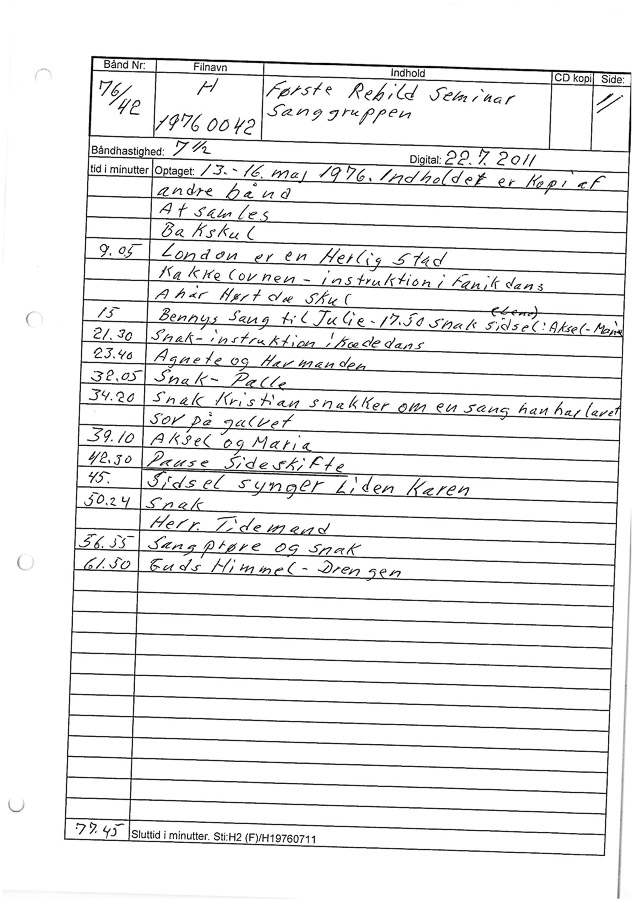 Bånd Nr: Filnavn Indhold CD kopi Side:
76/42 H Første Rebild Seminar 1/
19760042 Sanggruppen
Båndhastighed: 7 1/2 Digital: 22.7.2011
tid i minutter Optaget: 13.-16. maj 1976. Indholdet er Kopi af
andre bånd
At samles
Bakskul
9.05 London er en Herlig Stad
Kakkelovnen - instruktion i Fanikdans
A hår Hørt dæ skul
15 Bennys Sang til Julie - 17.50 snak Sidsel: Aksel - Maria
21.30 Snak - instruktion i kædedans
23.40 Agnete og Harmanden
32.05 Snak - Palle
34.20 Snak Kristian snakker om en sang han har lavet
sov på gulvet
39.10 Aksel og Maria
42.30 Pause Sideskifte
45. Sidsel synger Liden Karen
50.24 Snak
Herr. Tidemand
56.55 Sangprøve og snak
61.50 Guds Himmel - Drengen
77.45 Sluttid i minutter. Sti:H2 (F)/H19760711